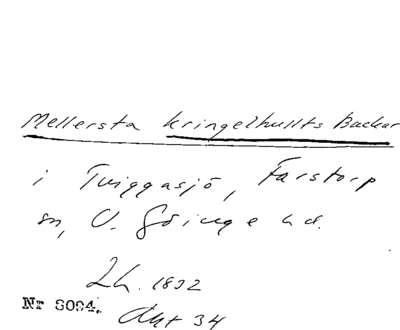 Mellersta Kringelhullts Backar
i Tviggasjö, Farstorp
sn, V. Göinge hd.
Lh. 1832
Nr 8094. Akt 34